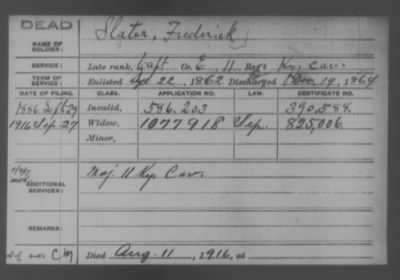 DEAD
Slater, Frederick
NAME OF SOLDIER:
SERVICE: Late rank, Capt Co. E, 11 Regt Ky. Cav.
TERM OF SERVICE: Enlisted 22, 1862 Discharged Dec. 19, 1864
DATE OF FILING. CLASS. APPLICATION NO. LAW. CERTIFICATE NO.
1886 Sept 29 Invalid, 586.203 390,588
1916 Sep. 27 Widow, 1077918 Sep. 825,006
Minor,
ADDITIONAL SERVICES: Maj. 11 Ky Cav.
REMARKS:
Died Aug. 11, 1916, at